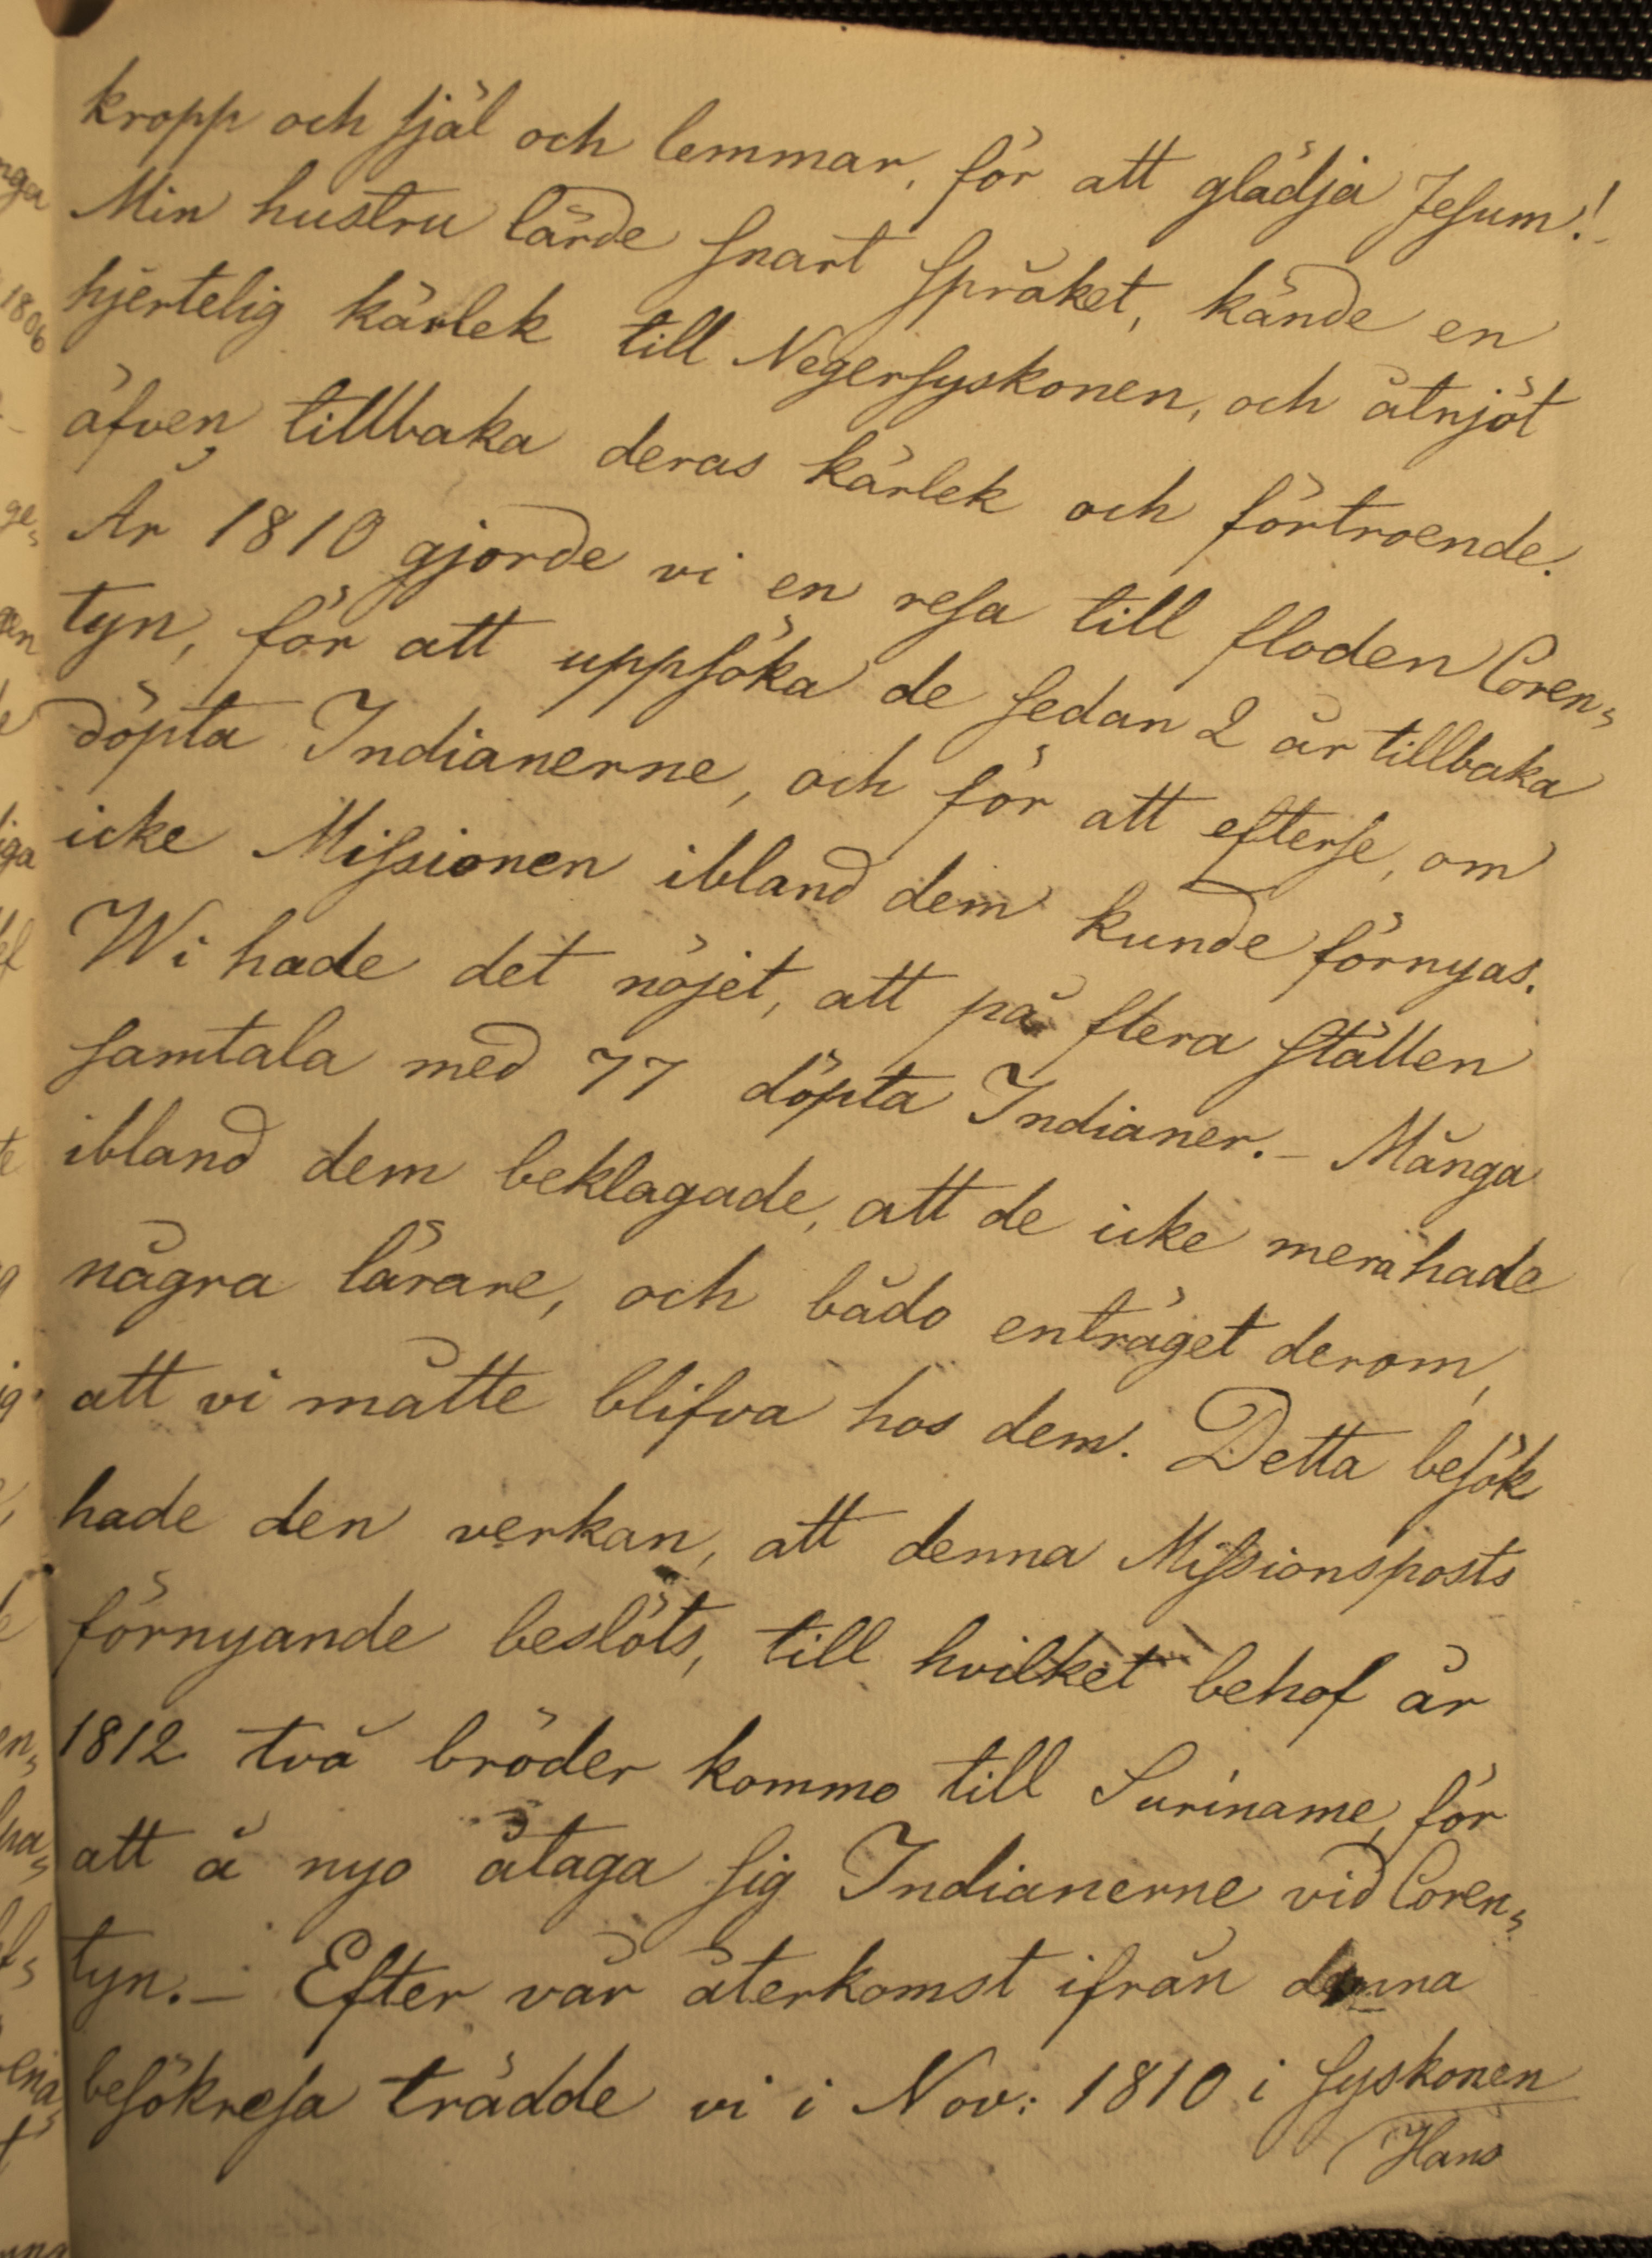 kropp och själ och lemmar, för att glädja Jesum! –
Min hustru lärde snart språket, kände en
hjertelig kärlek till Negersyskonen, och åtnjöt
äfven tillbaka deras kärlek och förtroende.
År 1810 gjorde vi en resa till floden Coren=
tyn, för att uppsöka de sedan 2 år tillbaka
döpta Indianerne, och för att efterse, om
icke Missionen ibland dem kunde förnyas.
Wi hade det nöjet, att på flera ställen
samtala med 77 döpta Indianer. – Många
ibland dem beklagade, att de icke mera hade
några lärare, och bådo enträget derom,
att vi måtte blifva hos dem. Detta besök
hade den verkan, att denna Missionsposts
förnyande beslöts, till hvilket behof år
1812 två bröder kommo till Suriname, för
att å nyo åtaga sig Indianerne vid Coren=
tyn. – Efter vår återkomst ifrån denna
besökresa trädde vi i Nov: 1810 i syskonen
(Hans